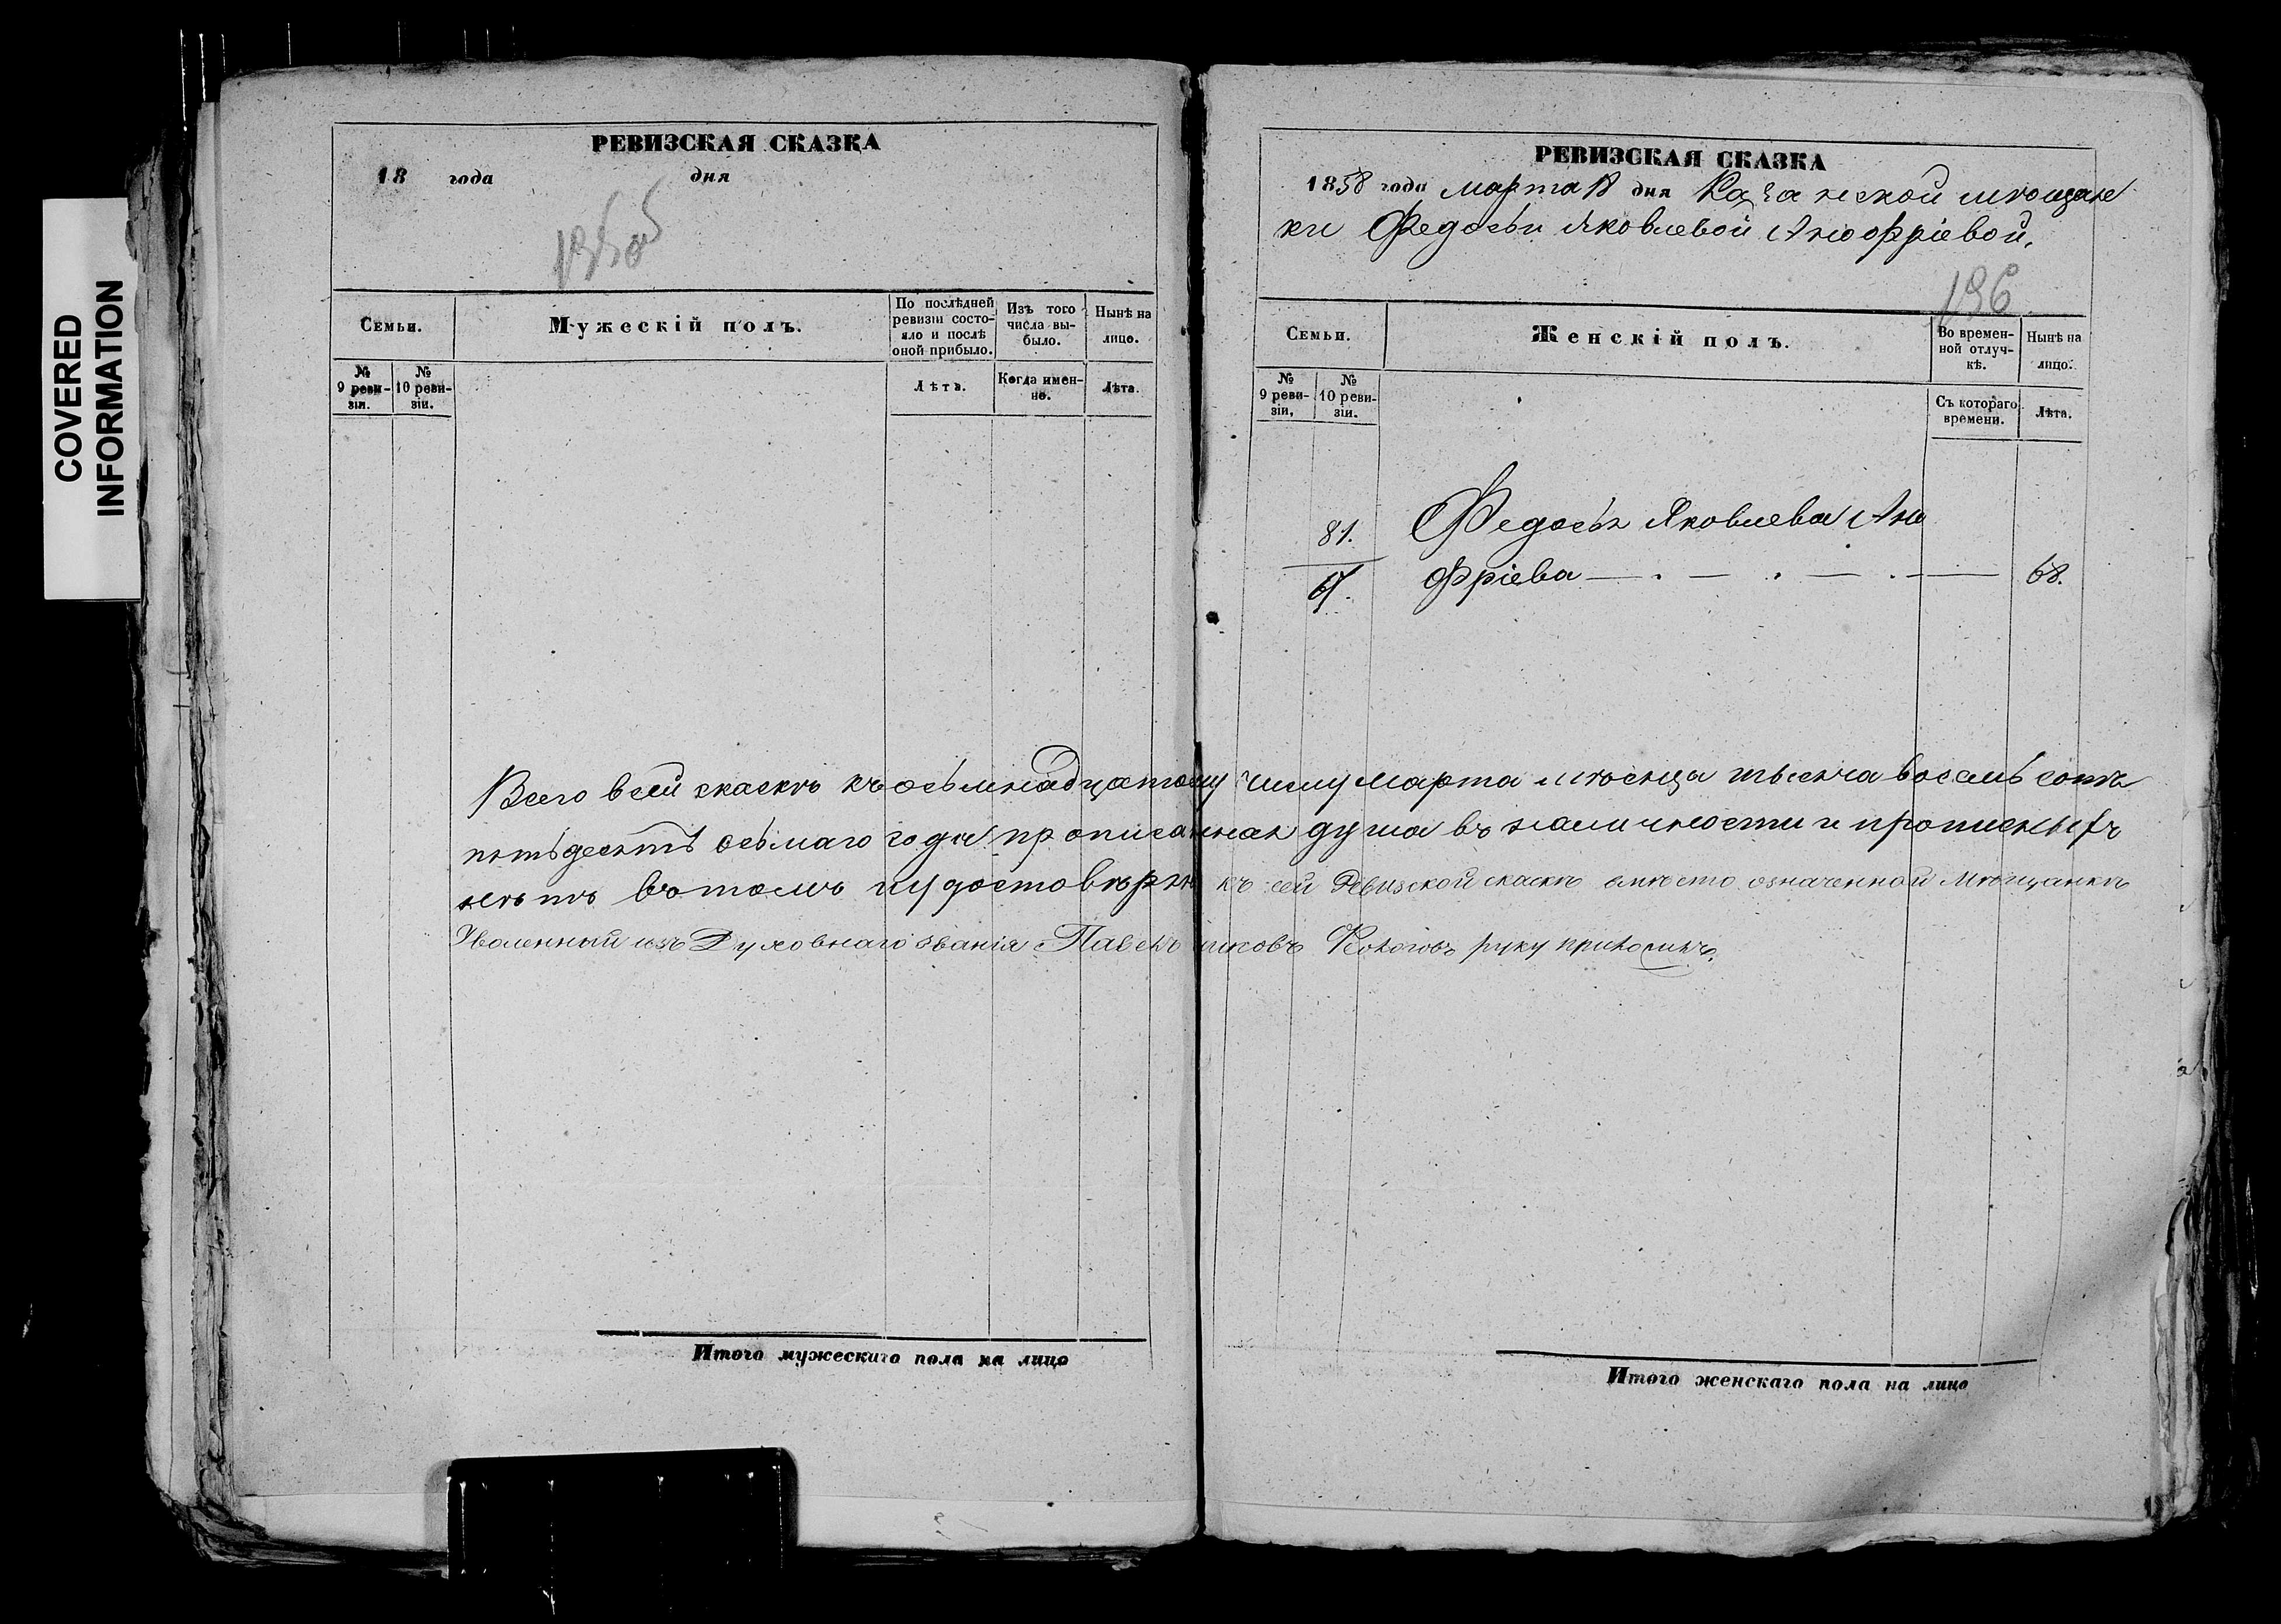 COVERED
INFORMATION
РЕВИЗСКАЯ СКАЗКА
18 года дня
Семьи.
Мужескій полъ.
По послѣдней ревизіи состояло и послѣ оной прибыло.
Изъ того числа выбыло.
Нынѣ на лицо.
№ 9 ревизіи.
№ 10 ревизіи.
Лѣта.
Когда именно.
Лѣта.
Итого мужескаго пола на лицо
РЕВИЗСКАЯ СКАЗКА
1858 года марта 18 дня Казанской мѣщан
ки Федосьи Яковлевой Аноофріевой.
196
Семьи.
Женскій полъ.
Во временной отлучкѣ.
Нынѣ на лицо.
№ 9 ревизіи,
№ 10 ревизіи.
Съ котораго времени.
Лѣта.
81. Федосья Яковлева Ано
фріева 68.
Всего в сей скаскѣ къ осьмнадцатому числу марта мѣсяца тысяча восемь сотъ
пятьдесятъ осьмаго года прописанная душа въ наличности и прописныхъ
нѣтъ в томъ и удостовѣряю къ сей Ревизской скаскѣ вмѣсто означенной Мѣщанки
Уволенный изъ Духовнаго званія Павелъ руку приложилъ.
Итого женскаго пола на лицо